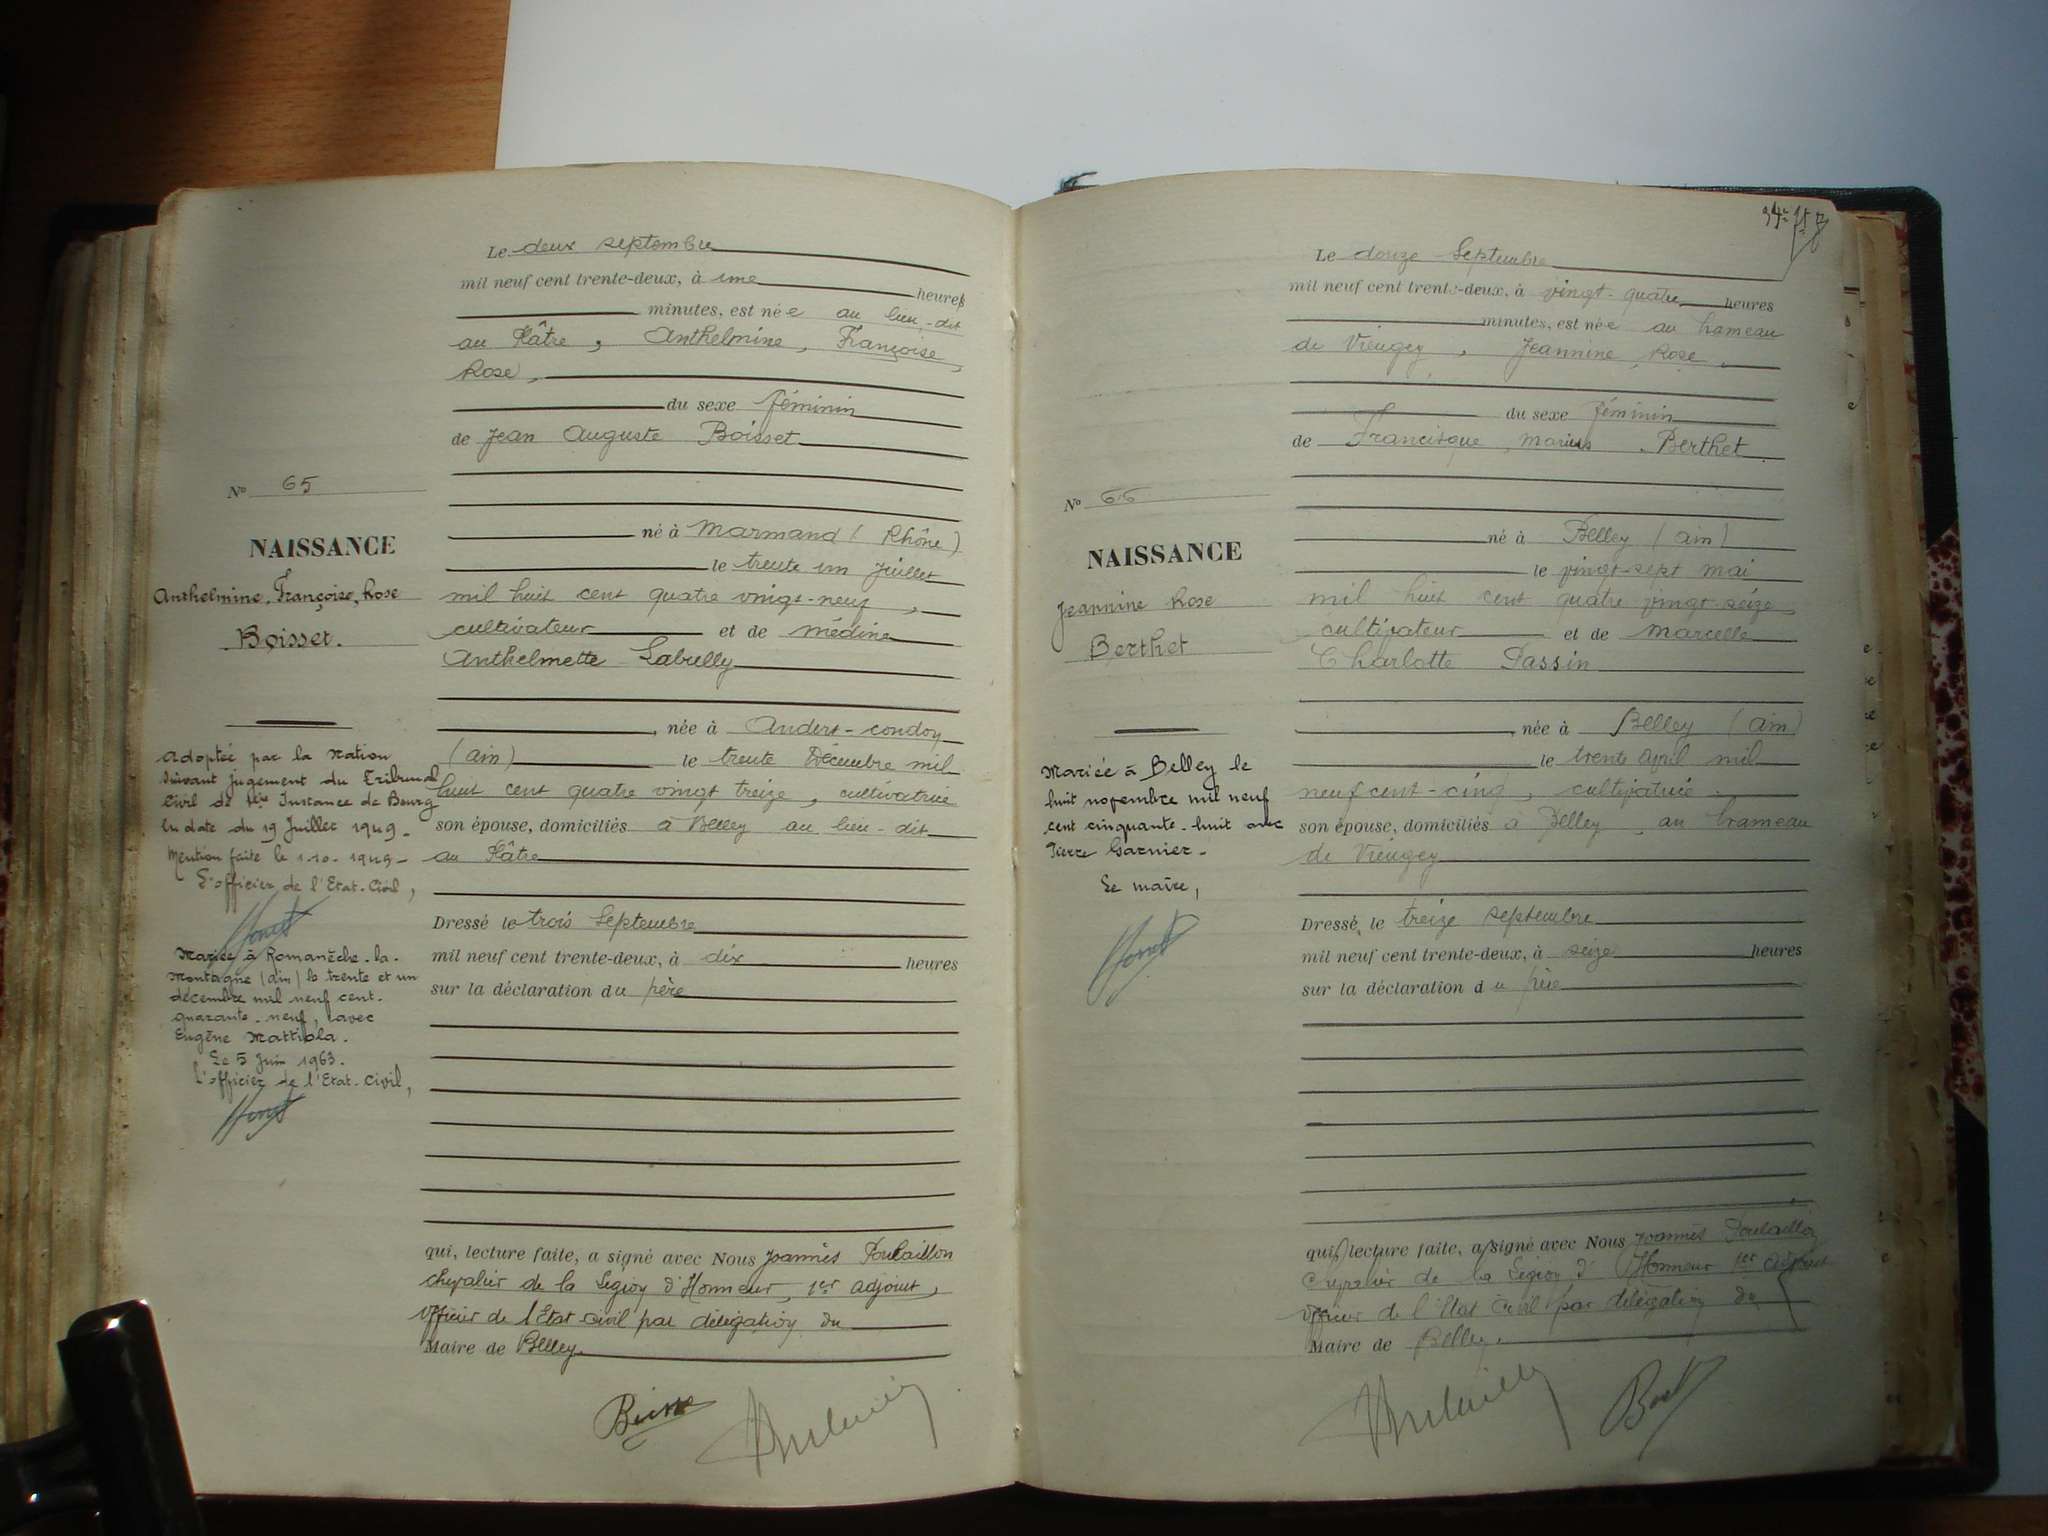 Le deux septembre
mil neuf cent trente-deux, à une heures
minutes, est née au lieu-dit
au Plâtre, Anthelmine, Françoise
Rose,
du sexe féminin
de Jean Auguste Boisset
né à Marmand (Rhône)
le trente un Juillet
mil huit cent quatre vingt-neuf,
cultivateur et de médine
Anthelmette Labrelly
née à Andert-condon
(ain) le trente Décembre mil
huit cent quatre vingt treize, cultivatrice
son épouse, domiciliés à Belley au lieu-dit
au Plâtre
Dressé le trois Septembre
mil neuf cent trente-deux, à dix heures
sur la déclaration du père
qui, lecture faite, a signé avec Nous Joannès Poulaillon
chevalier de la Légion d'Honneur, 1er adjoint,
officier de l'Etat civil par délégation du
Maire de Belley.
No 65
NAISSANCE
Anthelmine, Françoise, Rose
Boisset.
Adoptée par la Nation
suivant jugement du Tribunal
Civil de 1ère Instance de Bourg
en date du 19 Juillet 1949.
Mention faite le 1-10-1949-
L'officier de l'Etat-Civil,
Mariée à Romanèche-la-
Montagne (ain) le trente et un
décembre mil neuf cent-
quarante-neuf, avec
Eugène Mattiola.
Le 5 Juin 1963.
L'officier de l'Etat-Civil,
Le douze Septembre
mil neuf cent trente-deux, à vingt-quatre heures
minutes, est née au hameau
de Vieugey, Jeannine Rose,
du sexe féminin
de Francisque, Marius Berthet
né à Belley (ain)
le vingt-sept mai
mil huit cent quatre vingt-seize
cultivateur et de Marcelle
Charlotte Passin
née à Belley (ain)
le trente avril mil
neuf cent-cinq, cultivatrice
son épouse, domiciliés à Belley, au hameau
de Vieugey
Dressé le treize septembre
mil neuf cent trente-deux, à seize heures
sur la déclaration du père
qui, lecture faite, a signé avec Nous Joannès Poulaillon
chevalier de la Légion d'Honneur 1er adjoint
officier de l'Etat civil par délégation du
Maire de Belley.
No 66
NAISSANCE
Jeannine Rose
Berthet
Mariée à Belley le
huit novembre mil neuf
cent cinquante-huit avec
Pierre Garnier-
Le maire,